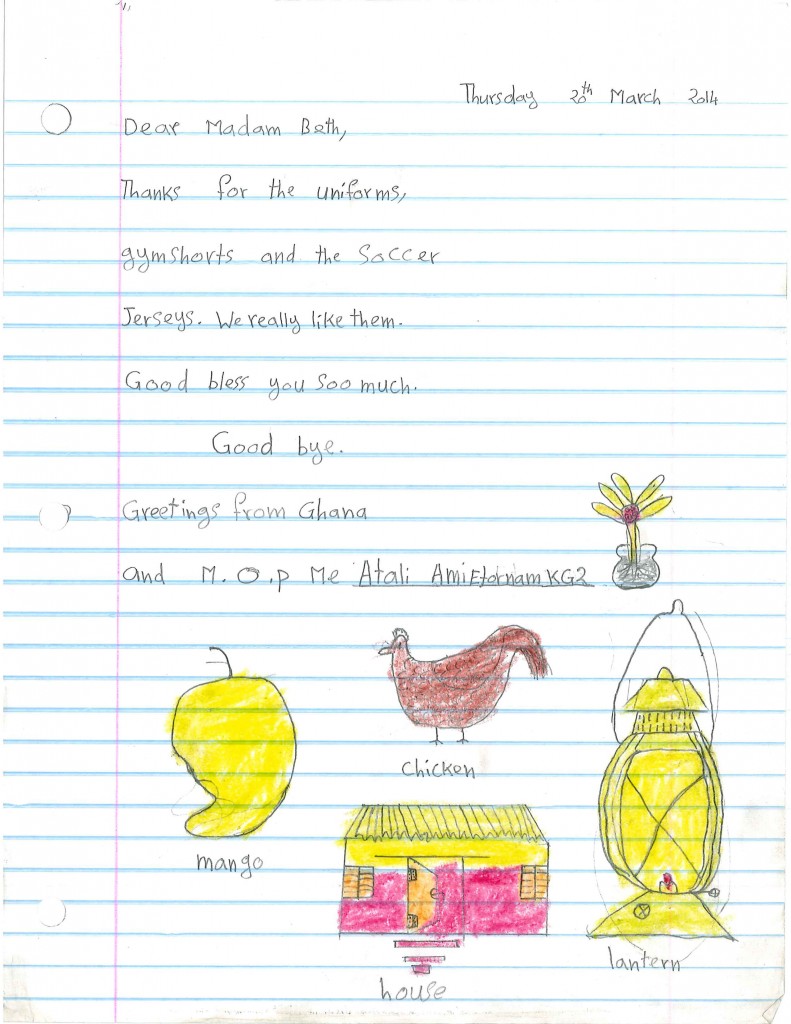 Thursday 20th March 2014
Dear Madam Beth,
Thanks for the uniforms,
gymshorts and the Soccer
Jerseys. We really like them.
Good bless you Soo much.
Good bye.
Greetings from Ghana
and M.O.P Me Atali Ami Etornam KG2
chicken
mango
lantern
house